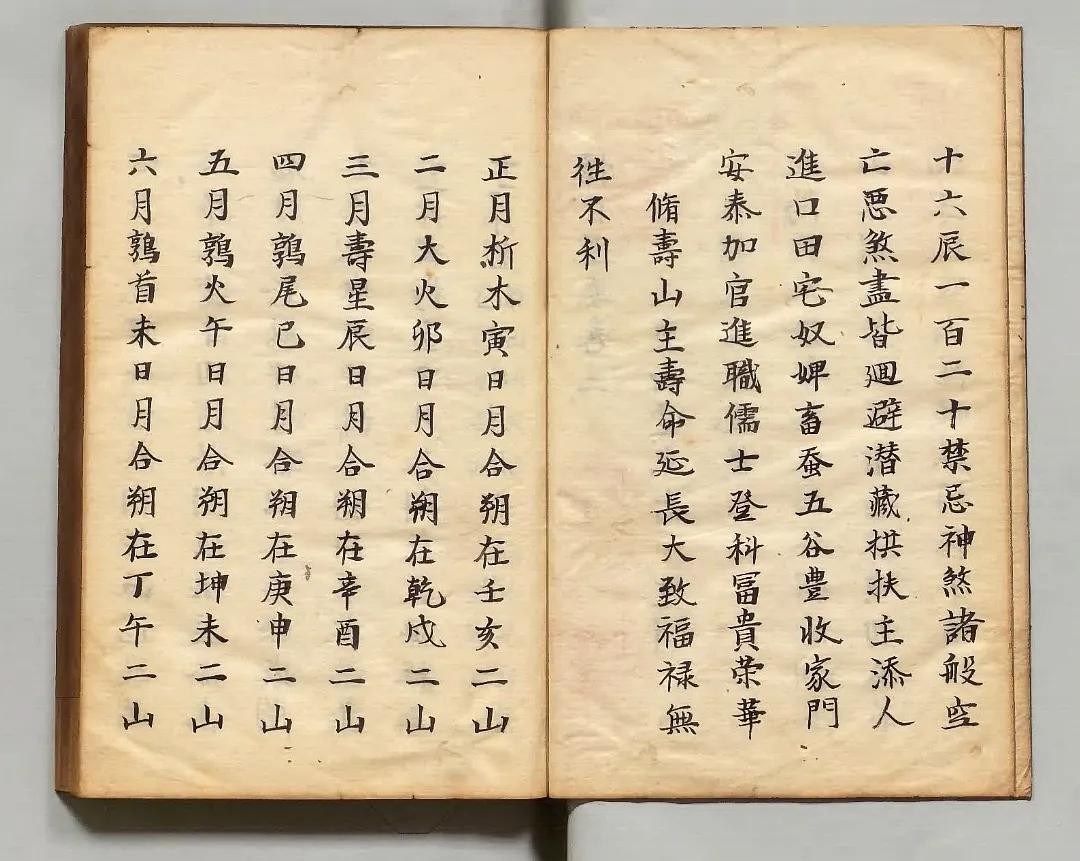 十六辰一百二十禁忌神煞諸般空
亡悪煞盡皆迴避潜藏拱扶主添人
進口田宅奴婢畜蚕五谷豊收家門
安泰加官進職儒士登科冨貴荣華
脩壽山主壽命延長大致福禄無
徃不利
正月析木寅日月合朔在壬亥二山
二月大火卯日月合朔在乾戍二山
三月壽星辰日月合朔在辛酉二山
四月鶉尾巳日月合朔在庚申二山
五月鶉火午日月合朔在坤未二山
六月鶉首未日月合朔在丁午二山